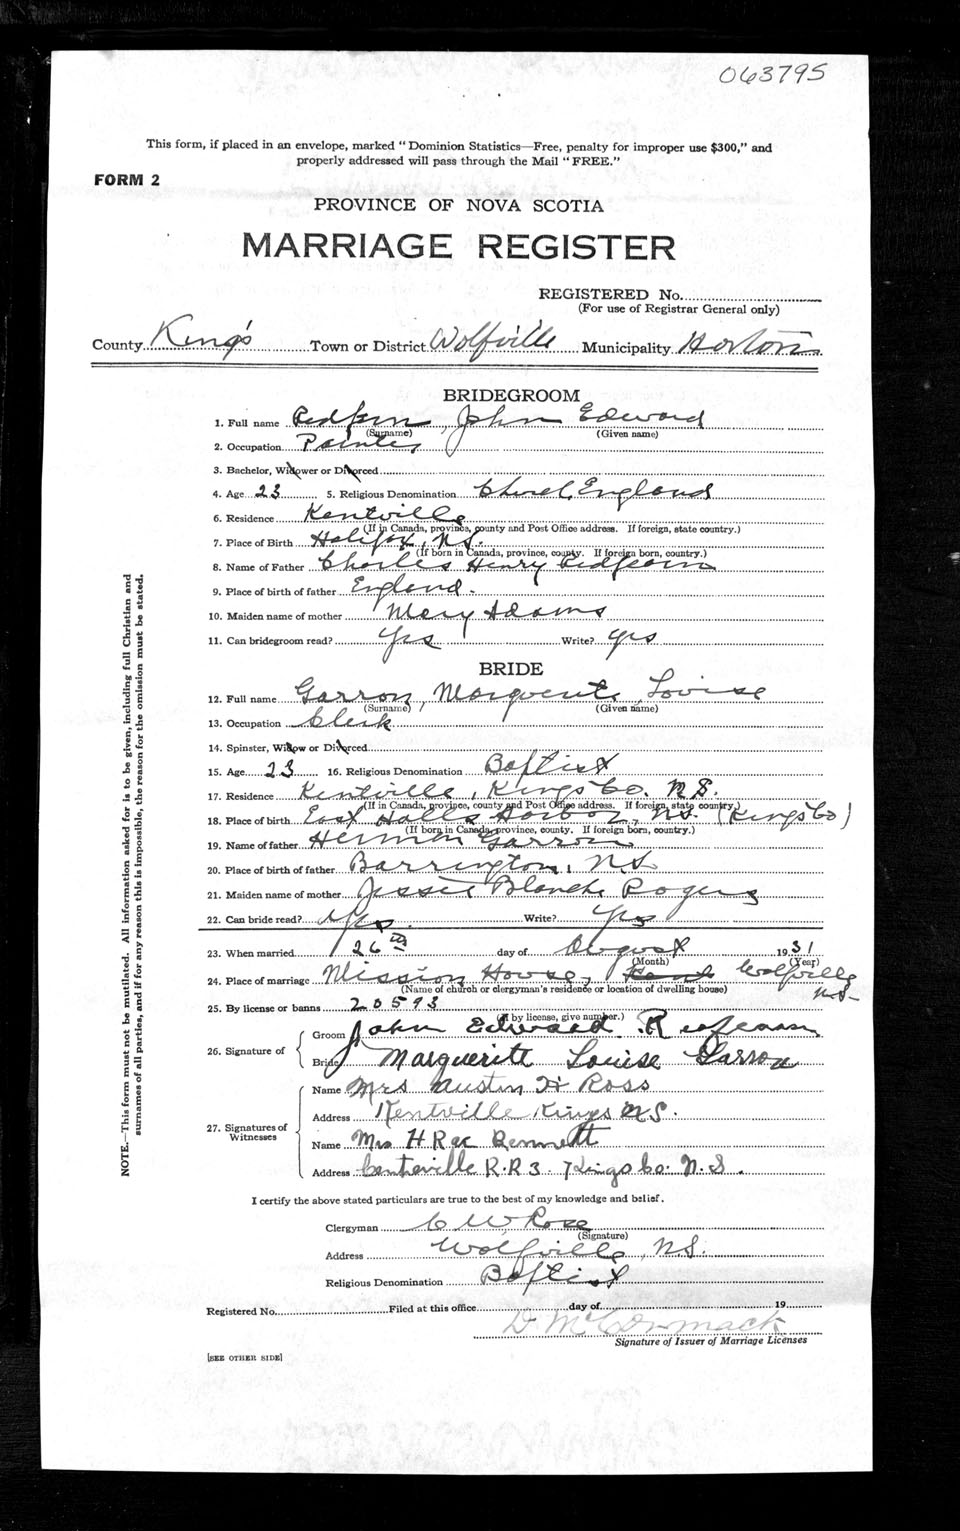 063795
This form, if placed in an envelope, marked "Dominion Statistics—Free, penalty for improper use $300," and
properly addressed will pass through the Mail "FREE."
FORM 2
PROVINCE OF NOVA SCOTIA
MARRIAGE REGISTER
REGISTERED No.
(For use of Registrar General only)
County King's Town or District Wolfville Municipality Horton
BRIDEGROOM
1. Full name Redfern, John Edward
(Surname) (Given name)
2. Occupation Painter
3. Bachelor, Widower or Divorced
4. Age 23 5. Religious Denomination Church England
6. Residence Kentville
(If in Canada, province, county and Post Office address. If foreign, state country.)
7. Place of Birth Halifax, N.S.
(If born in Canada, province, county. If foreign born, country.)
8. Name of Father Charles Henry
9. Place of birth of father England.
10. Maiden name of mother Mary Adams
11. Can bridegroom read? Yes Write? Yes
BRIDE
12. Full name Garron, Marguerite Louise
(Surname) (Given name)
13. Occupation Clerk
14. Spinster, Widow or Divorced
15. Age 23 16. Religious Denomination Baptist
17. Residence Kentville, Kings Co. N.S.
(If in Canada, province, county and Post Office address. If foreign, state country.)
18. Place of birth East Halls Harbor, N.S. (Kings Co)
(If born in Canada, province, county. If foreign born, country.)
19. Name of father Herman Garron
20. Place of birth of father Barrington, N.S.
21. Maiden name of mother Jessie Blanche Rogers
22. Can bride read? Yes. Write? Yes
23. When married 26th day of August 1931
(Month) (Year)
24. Place of marriage Mission House, Wolfville
N.S.
(Name of church or clergyman's residence or location of dwelling house)
25. By license or banns 20593
(If by license, give number.)
26. Signature of
Groom John Edward
Bride Marguerite Louise Garron
27. Signatures of Witnesses
Name Mrs Austin H Ross
Address Kentville Kings N.S.
Name Mrs H Rae Bennett
Address Centreville R.R 3. Kings Co. N.S.
I certify the above stated particulars are true to the best of my knowledge and belief.
Clergyman C W Rose
(Signature)
Address Wolfville, N.S.
Religious Denomination Baptist
Registered No. Filed at this office day of 19
D McCormack
Signature of Issuer of Marriage Licenses
[SEE OTHER SIDE]
NOTE.—This form must not be mutilated. All information asked for is to be given, including full Christian and
surnames of all parties, and if for any reason this is impossible, the reason for the omission must be stated.